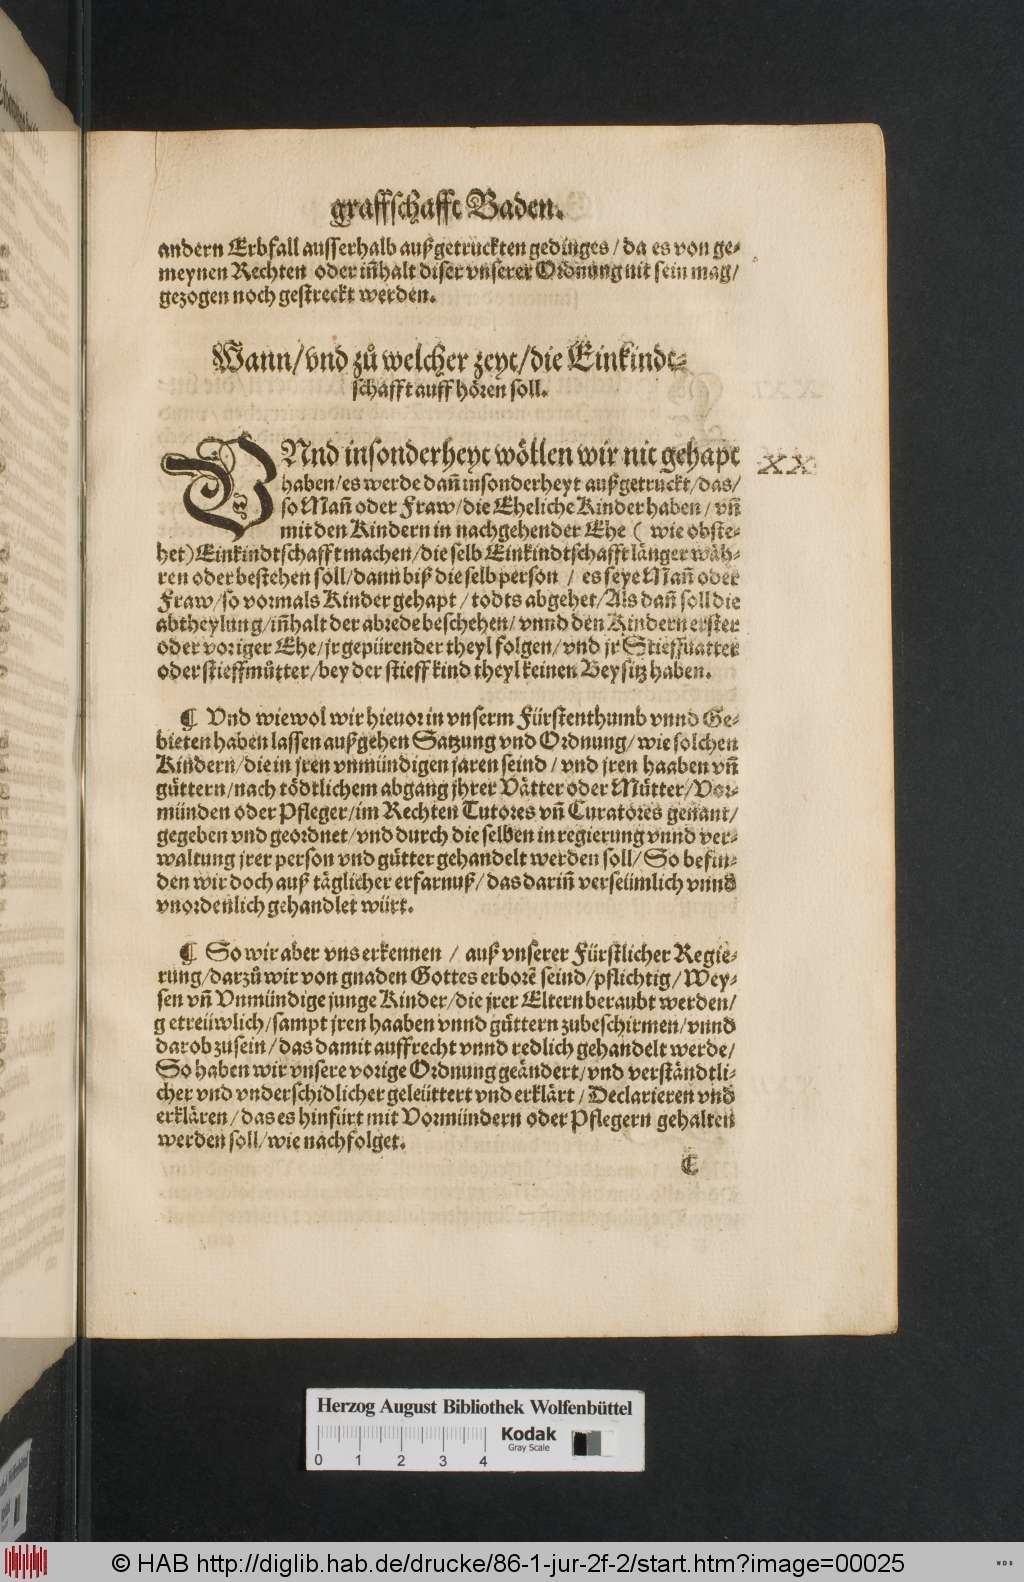 graffschafft Baden.
andern Erbfall ausserhalb außgetruckten gedinges / da es von ge-
meynen Rechten oder iñhalt diser vnserer Ordnung nit sein mag /
gezogen noch gestreckt werden.
Wann / vnd zů welcher zeyt / die Einkindt-
schafft auff hören soll.
VNnd insonderheyt wöllen wir nit gehapt
XX
haben / es werde dañ insonderheyt außgetruckt / das /
so Mañ oder Fraw / die Eheliche Kinder haben / vñ
mit den Kindern in nachgehender Ehe ( wie obste-
het) Einkindtschafft machen / die selb Einkindtschafft länger wäh-
ren oder bestehen soll / dann biß die selb person / es seye Mañ oder
Fraw / so vormals Kinder gehapt / todts abgehet / Als dañ soll die
abtheylung / iñhalt der abrede beschehen / vnnd den Kindern erster
oder voriger Ehe / jr gepürender theyl folgen / vnd jr Stieffuatter
oder stieffmůtter / bey der stieffkind theyl keinen Beysitz haben.
¶ Vnd wiewol wir hieuor in vnserm Fürstenthumb vnnd Ge-
bieten haben lassen außgehen Satzung vnd Ordnung / wie solchen
Kindern / die in jren vnmündigen jaren seind / vnd jren haaben vñ
güttern / nach tödtlichem abgang jhrer Vätter oder Mütter / Vor-
münden oder Pfleger / im Rechten Tutores vñ Curatores genant /
gegeben vnd geordnet / vnd durch die selben in regierung vnnd ver-
waltung jrer person vnd gütter gehandelt werden soll / So befin-
den wir doch auß täglicher erfarnuß / das dariñ verseümlich vnnd
vnordenlich gehandlet würt.
¶ So wir aber vns erkennen / auß vnserer Fürstlicher Regie-
rung / darzů wir von gnaden Gottes erborē seind / pflichtig / Wey-
sen vñ Vnmündige junge Kinder / die jrer Eltern beraubt werden /
getreüwlich / sampt jren haaben vnnd güttern zubeschirmen / vnnd
darob zusein / das damit auffrecht vnnd redlich gehandelt werde /
So haben wir vnsere vorige Ordnung geändert / vnd verständtli-
cher vnd vnderschidlicher geleüttert vnd erklärt / Declarieren vnd
erklären / das es hinfürt mit Vormündern oder Pflegern gehalten
werden soll / wie nachfolget.
C
Herzog August Bibliothek Wolfenbüttel
Kodak
Gray Scale
0 1 2 3 4
© HAB http://diglib.hab.de/drucke/86-1-jur-2f-2/start.htm?image=00025